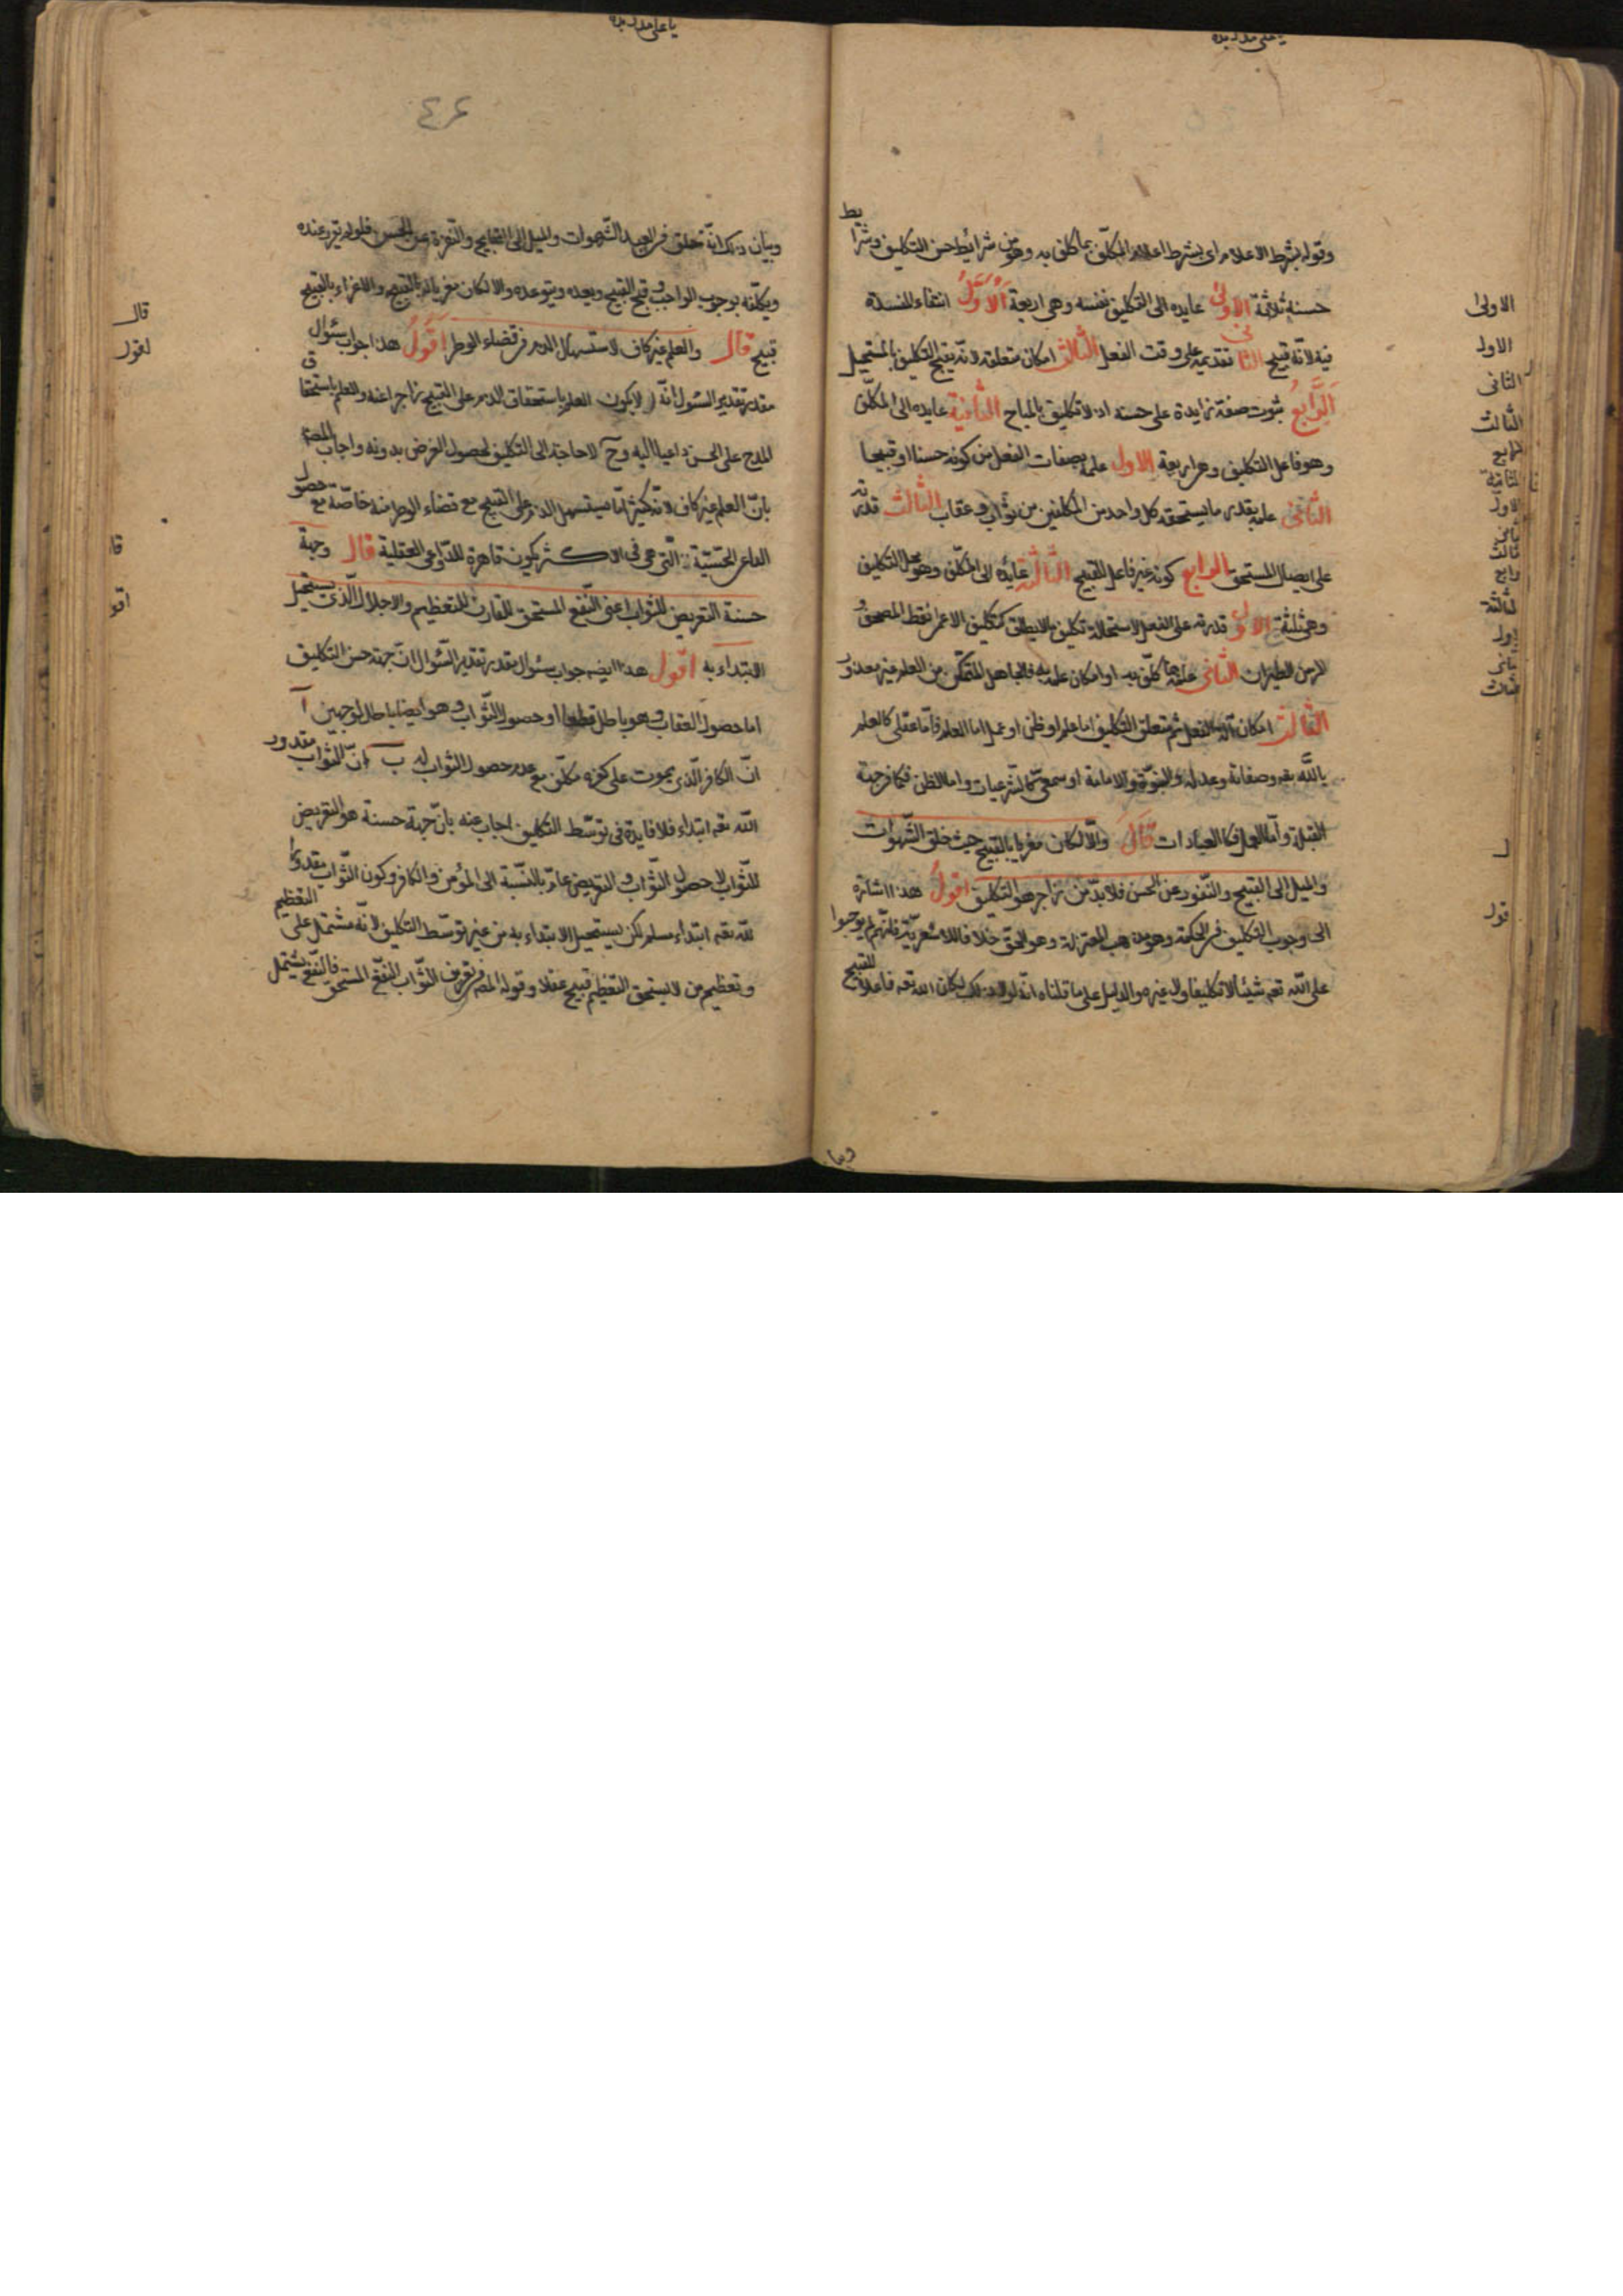 وقوله بشرط الاعلام اى بشرط اعلام المكلّف بما كلّف به وهو من شرائط حسن التكليف وشرايط
حسنه ثلاثة الاولى عايده الى التكليف نفسه وهى اربعة الاوّل انتفاء المفسدة
فيه لانّه قبيح الثانى تقديمه على وقت الفعل الثالث امكان متعلقه لانّه يقبح التكليف بالمستحيل
الرّابع ثبوت صفة زايدة على حسنه اذ لا تكليف بالمباح الثانية عايده الى المكلّف
وهو فاعل التكليف وهى اربعة الاول علمه بصفات الفعل من كونه حسنا او قبيحا
الثّانى علمه بقدر ما يستحقه كل واحد من المكلفين من ثواب وعقاب الثالث قدرته
على ايصال المستحق الرابع كونه غير فاعل للقبيح الثالثة عايده الى المكلّف وهو محل التكليف
وهى ثلثة الاول قدرته على الفعل لاستحالة تكليف ما لا يطاق كتكليف الاعمى نقط المصحف و
الزمن الطيران الثّانى علمه بما كلّف به او امكان علمه به فالجاهل المتمكّن من العلم غير معذور
الثالث امكان آلة الفعل ثم متعلق التكليف اما علم او ظن او عمل اما العلم فامّا عقلى كالعلم
باللّه تعه وصفاته وعدله والنبوّة والامامة او سمعىّ كالشرعيات واما الظن فكما فى جهة
القبلة وامّا العمل فكالعبادات قال والّا لكان مغريا بالقبيح حيث خلق الشّهوات
والميل الى القبيح والنّفور عن الحسن فلا بدّ من زاجر هو التكليف اقول هذا اشارة
الى وجوب التكليف فى الحكمة وهو مذهب المعتزلة وهو الحقّ خلافا للاشعريّة فانّهم لم يوجبوا
على اللّه تعه شيئا لا تكليفا ولا غيره والدليل على ما قلناه انّه لو لا ذلك لكان اللّه تعه فاعلا للقبيح
الاولى
الاول
الثانى
الثالث
الرابع
الثانية
الاول
ثانى
ثالث
رابع
الثالثة
اول
ثانى
ثالث
ل
قول
٤٦
وبيان ذلك انّه خلق فى العبد الشّهوات والميل الى القبايح والنّفرة عن الحسن فلو لم يقرر عنده
ويكلّفه بوجوب الواجب وقبح القبيح ويعده ويتوعده والا لكان مغريا له بالقبيح والاغراء بالقبيح
قبيح قال والعلم غير كاف لاستسهال الذم فى قضاء الوطر اقول هذا جواب سئوال
مقدر تقدير السئول انّه لم لا يكون العلم باستحقاق الذم على القبيح زاجرا عنه والعلم باستحقاق
المدح على الحسن داعيا اليه وح لا حاجة الى التكليف لحصول الغرض بدونه واجاب المصه
بانّ العلم غير كاف لانّه كثيرا ما يستسهل الذم على القبيح مع قضاء الوطر منه خاصّة مع حصول
الدواعى الحسّيّة الّتى هى فى الاكثر يكون قاهرة للدّواعى العقلية قال وجهة
حسنه التعريض للثواب اعنى النّفع المستحق المقارن للتعظيم والاجلال الّذى يستحيل
الابتداء به اقول هذا ايضه جواب سئوال مقدر تقدير السّئوال انّ جهة حسن التكليف
اما حصول العقاب وهو باطل قطعا او حصول الثّواب وهو ايضا باطل لوجهين ا
انّ الكافر الّذى يموت على كفره مكلّف مع عدم حصول الثواب له ب انّ الثواب مقدور
اللّه تعه ابتداء فلا فايدة فى توسّط التكليف اجاب عنه بانّ جهة حسنه هو التعريض
للثّواب لا حصول الثّواب والتعريض عامّ بالنّسبة الى المؤمن والكافر وكون الثّواب مقدورا
للّه تعه ابتداء مسلم لكن يستحيل الابتداء به من غير توسّط التكليف لانّه مشتمل على التعظيم
وتعظيم من لا يستحق التعظيم قبيح عقلا وقوله المصه فى تعريف الثّواب النّفع المستحق فالنّفع يشتمل
قال
اقول
قا
اقو